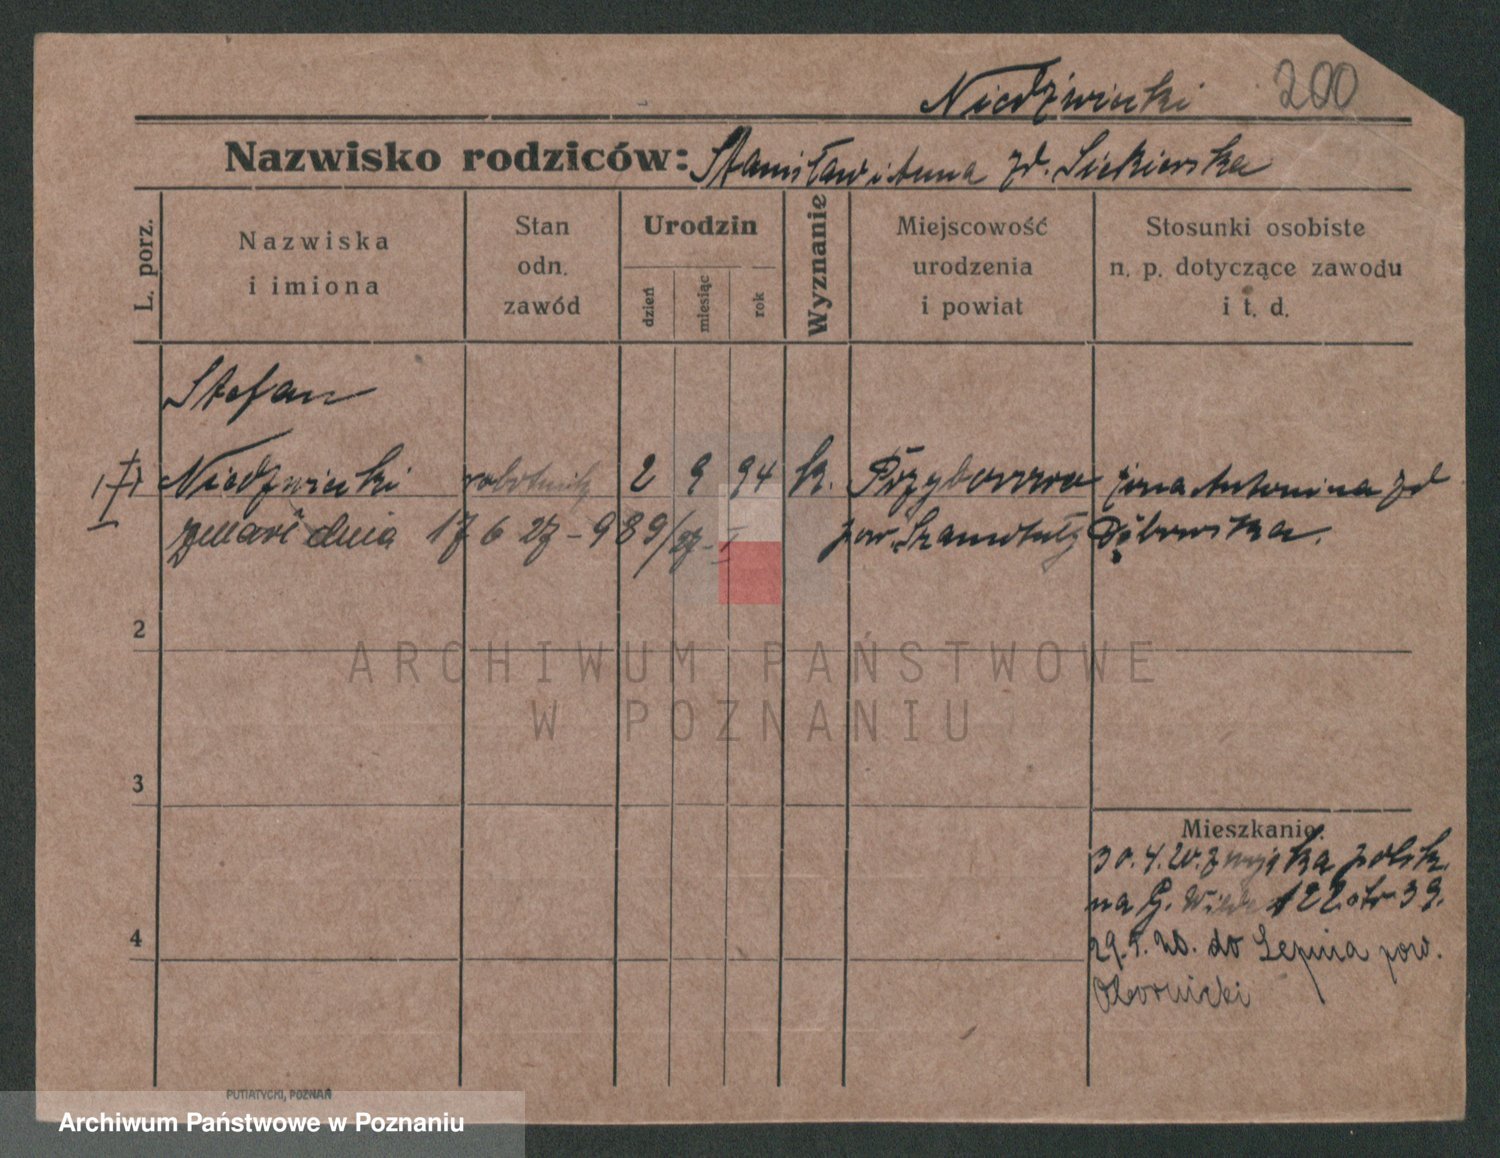 Niedźwiecki 200
Nazwisko rodziców: Stanisław i Anna zd. Siekierska
L. porz.
Nazwiska
i imiona
Stan
odn.
zawód
Urodzin
dzień
miesiąc
rok
Wyznanie
Miejscowość
urodzenia
i powiat
Stosunki osobiste
n. p. dotyczące zawodu
i t. d.
Stefan
1 Niedzwiecki robotnik 2 9 94 k. Przyborowo żona Antonina zd
zmarł dnia 17 6 27 - 989/27 - I pow. Szamotuły Dąbrowska.
2
3
4
Mieszkanie:
30.4.20. z wojska polsk.
na G. Wilda 122 otr 39.
29.5.20. do pow.
Obornicki
PUTIATYCKI, POZNAŃ
ARCHIWUM PAŃSTWOWE
W POZNANIU
Archiwum Państwowe w Poznaniu